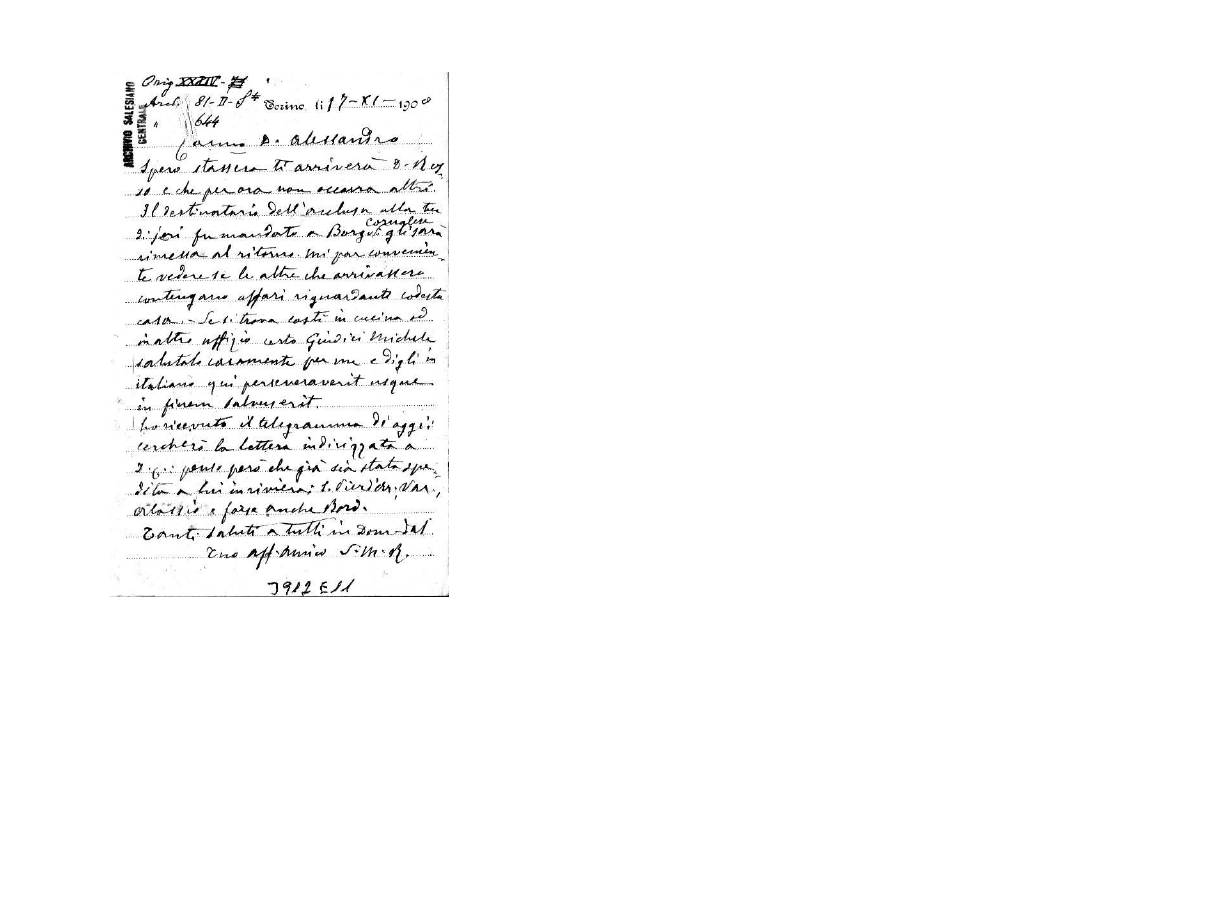 Orig XXXIV - 71
Arch. 81-II-8ª Torino, li 17-XI-1908
" 644
ARCHIVIO SALESIANO
CENTRALE
Car.mo D. Alessandro
Spero stassera ti arriverà D. Ros
so e che per ora non occorra altri.
Il destinatario dell'acclusa alla tua
D. jeri fu mandato a Borgo gli sarà
rimessa al ritorno. Mi par convenien
te vedere se le altre che arrivassero
contengano affari riguardanti codesta
casa. - Se si trova costì in cucina od
in altro uffizio certo Giudici Michele
salutalo caramente per me e digli in
italiano qui perseveraverit usque
in finem salvus erit.
ho ricevuto il telegramma di oggi:
cercherò la lettera indirizzata a
penso però che già sia stata spe-
dita a lui in riviera: S. Pier d'Ar., Var.,
Alassio e forse anche Bord.
Tanti saluti a tutti in Dom. Sal.
Tuo aff. Amico S. M. R.
3912 E11